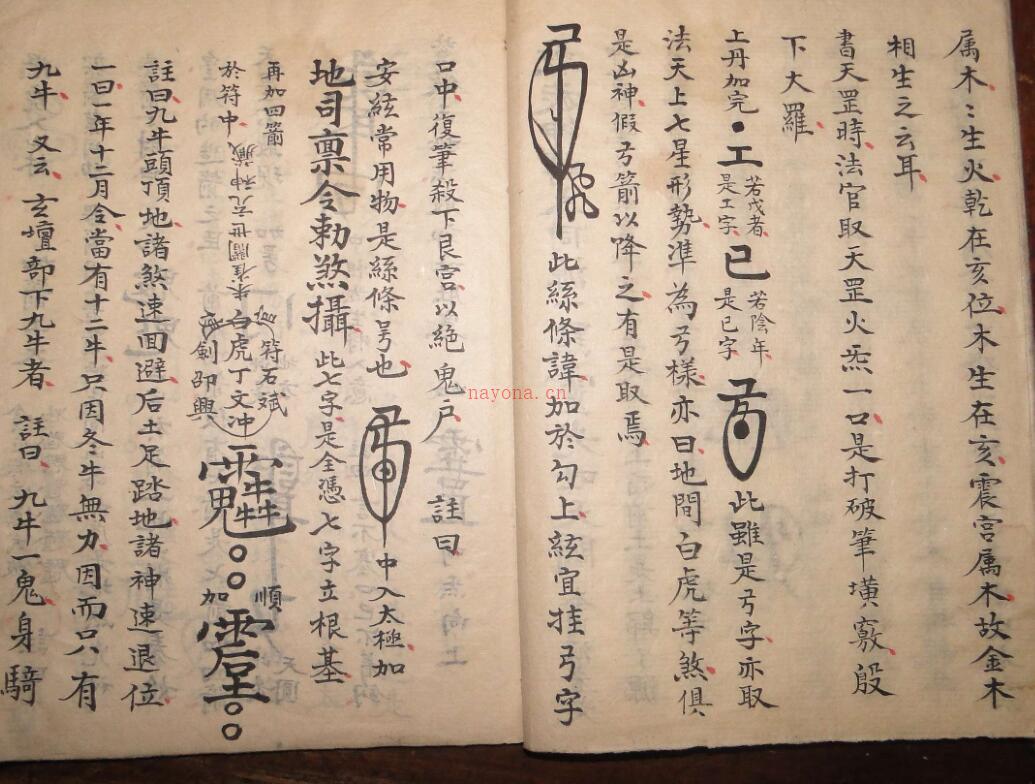 属木〻生火乾在亥位木生在亥震宫属木故金木
相生之云耳
書天罡時法官取天罡火炁一口是打破筆墳竅殷
下大羅
上丹加完・工 若戊者是工字 已 若陰年是已字 此雖是弓字亦取
法天上七星形勢準為弓樣亦曰地間白虎等煞俱
是凶神假弓箭以降之有是取焉
此絲條諱加於勾上絃宜挂弓字
口中復筆殺下艮宫以絶鬼户 註曰
安絃常用物是絲條号也 中入太極加
地司禀令勅煞攝 此七字是全憑七字立根基
再加四箭
於符中 朱雀闇世充神藏 白虎丁文冲 符石斌 劍邵興 順 加
註曰九牛頭頂地諸煞速回避后土足踏地諸神速退位
一曰一年十二月令當有十二牛只因冬牛無力因而只有
九牛 又云玄壇部下九牛者 註曰九牛一鬼身騎
nayona.cn